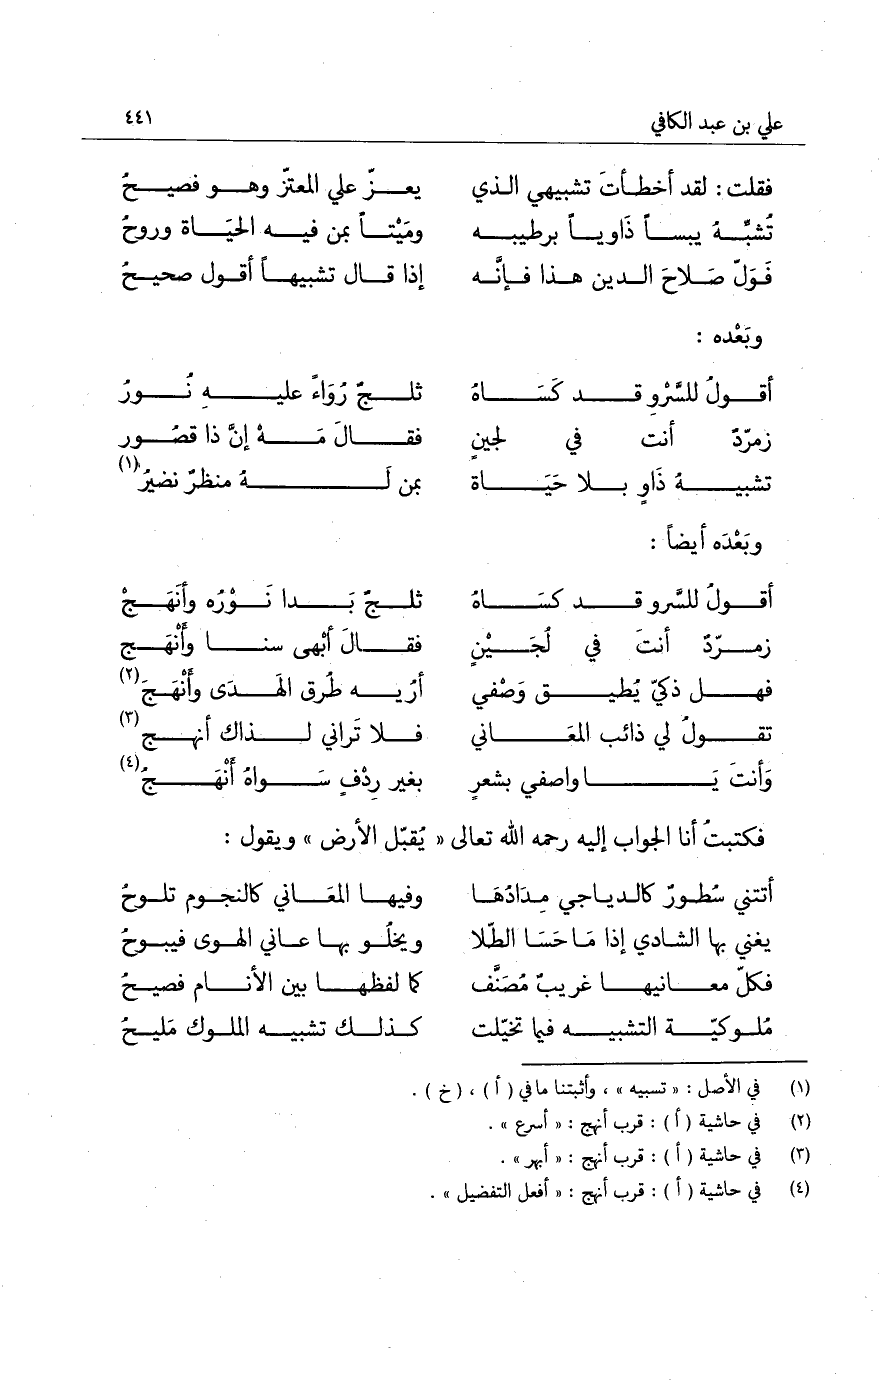 علي بن عبد الكافي ٤٤١
فقلت : لقد أخطأتَ تشبيهي الذي يعزّ علي المعتزّ وهو فصيحُ
تُشبِّهُ يبساً ذَاوياً برطيبه ومَيْتاً بمن فيه الحيَاة وروحُ
فَوَلّ صَلاحَ الدين هذا فإنَّه إذا قال تشبيهاً أقول صحيحُ
وبَعْده :
أقولُ للسَّرْوِ قد كَسَاهُ ثلجٌ رُوَاءً عليهِ نُورُ
زمرّدٌ أنت في لجينٍ فقالَ مَهْ إنَّ ذا قصُور
تشبيهُ ذَاوٍ بلا حَيَاةٍ بمن لَهُ منظرٌ نضيرُ(١)
وبَعْدَه أيضاً :
أقولُ للسَّرو قد كسَاهُ ثلجٌ بَدا نَوْرُه وأَنَهَجْ
زمرّدٌ أنتَ في لُجَيْنٍ فقالَ أبْهى سنا وأَنْهَج
فهل ذكيّ يُطيق وَصْفي أرُيه طُرق الهَدَى وأَنْهَجَ(٢)
تقولُ لي ذائب المعَاني فلا تَراني لذاك أنهج(٣)
وَأنتَ يَا واصفي بشعرٍ بغير رِدْفٍ سَواهُ أَنْهَجُ(٤)
فكتبتُ أنا الجواب إليه رحمه الله تعالى « يُقبّل الأرض » ويقول :
أتتني سُطورٌ كالدياجي مِدَادُهَا وفيها المعَاني كالنجوم تلوحُ
يغني بها الشادي إذا مَا حَسَا الطّلا ويخلُو بها عاني الهوى فيبوحُ
فكلّ معانيها غريبٌ مُصَنَّف كما لفظها بين الأنام فصيحُ
مُلوكيّة التشبيه فيما تخيّلت كذلك تشبيه الملوك مَليحُ
(١) في الأصل : « تسبيه » ، وأثبتنا ما في ( أ ) ، ( خ ) .
(٢) في حاشية ( أ ) : قرب أنهج : « أسرع » .
(٣) في حاشية ( أ ) : قرب أنهج : « أبهر » .
(٤) في حاشية ( أ ) : قرب أنهج : « أفعل التفضيل » .